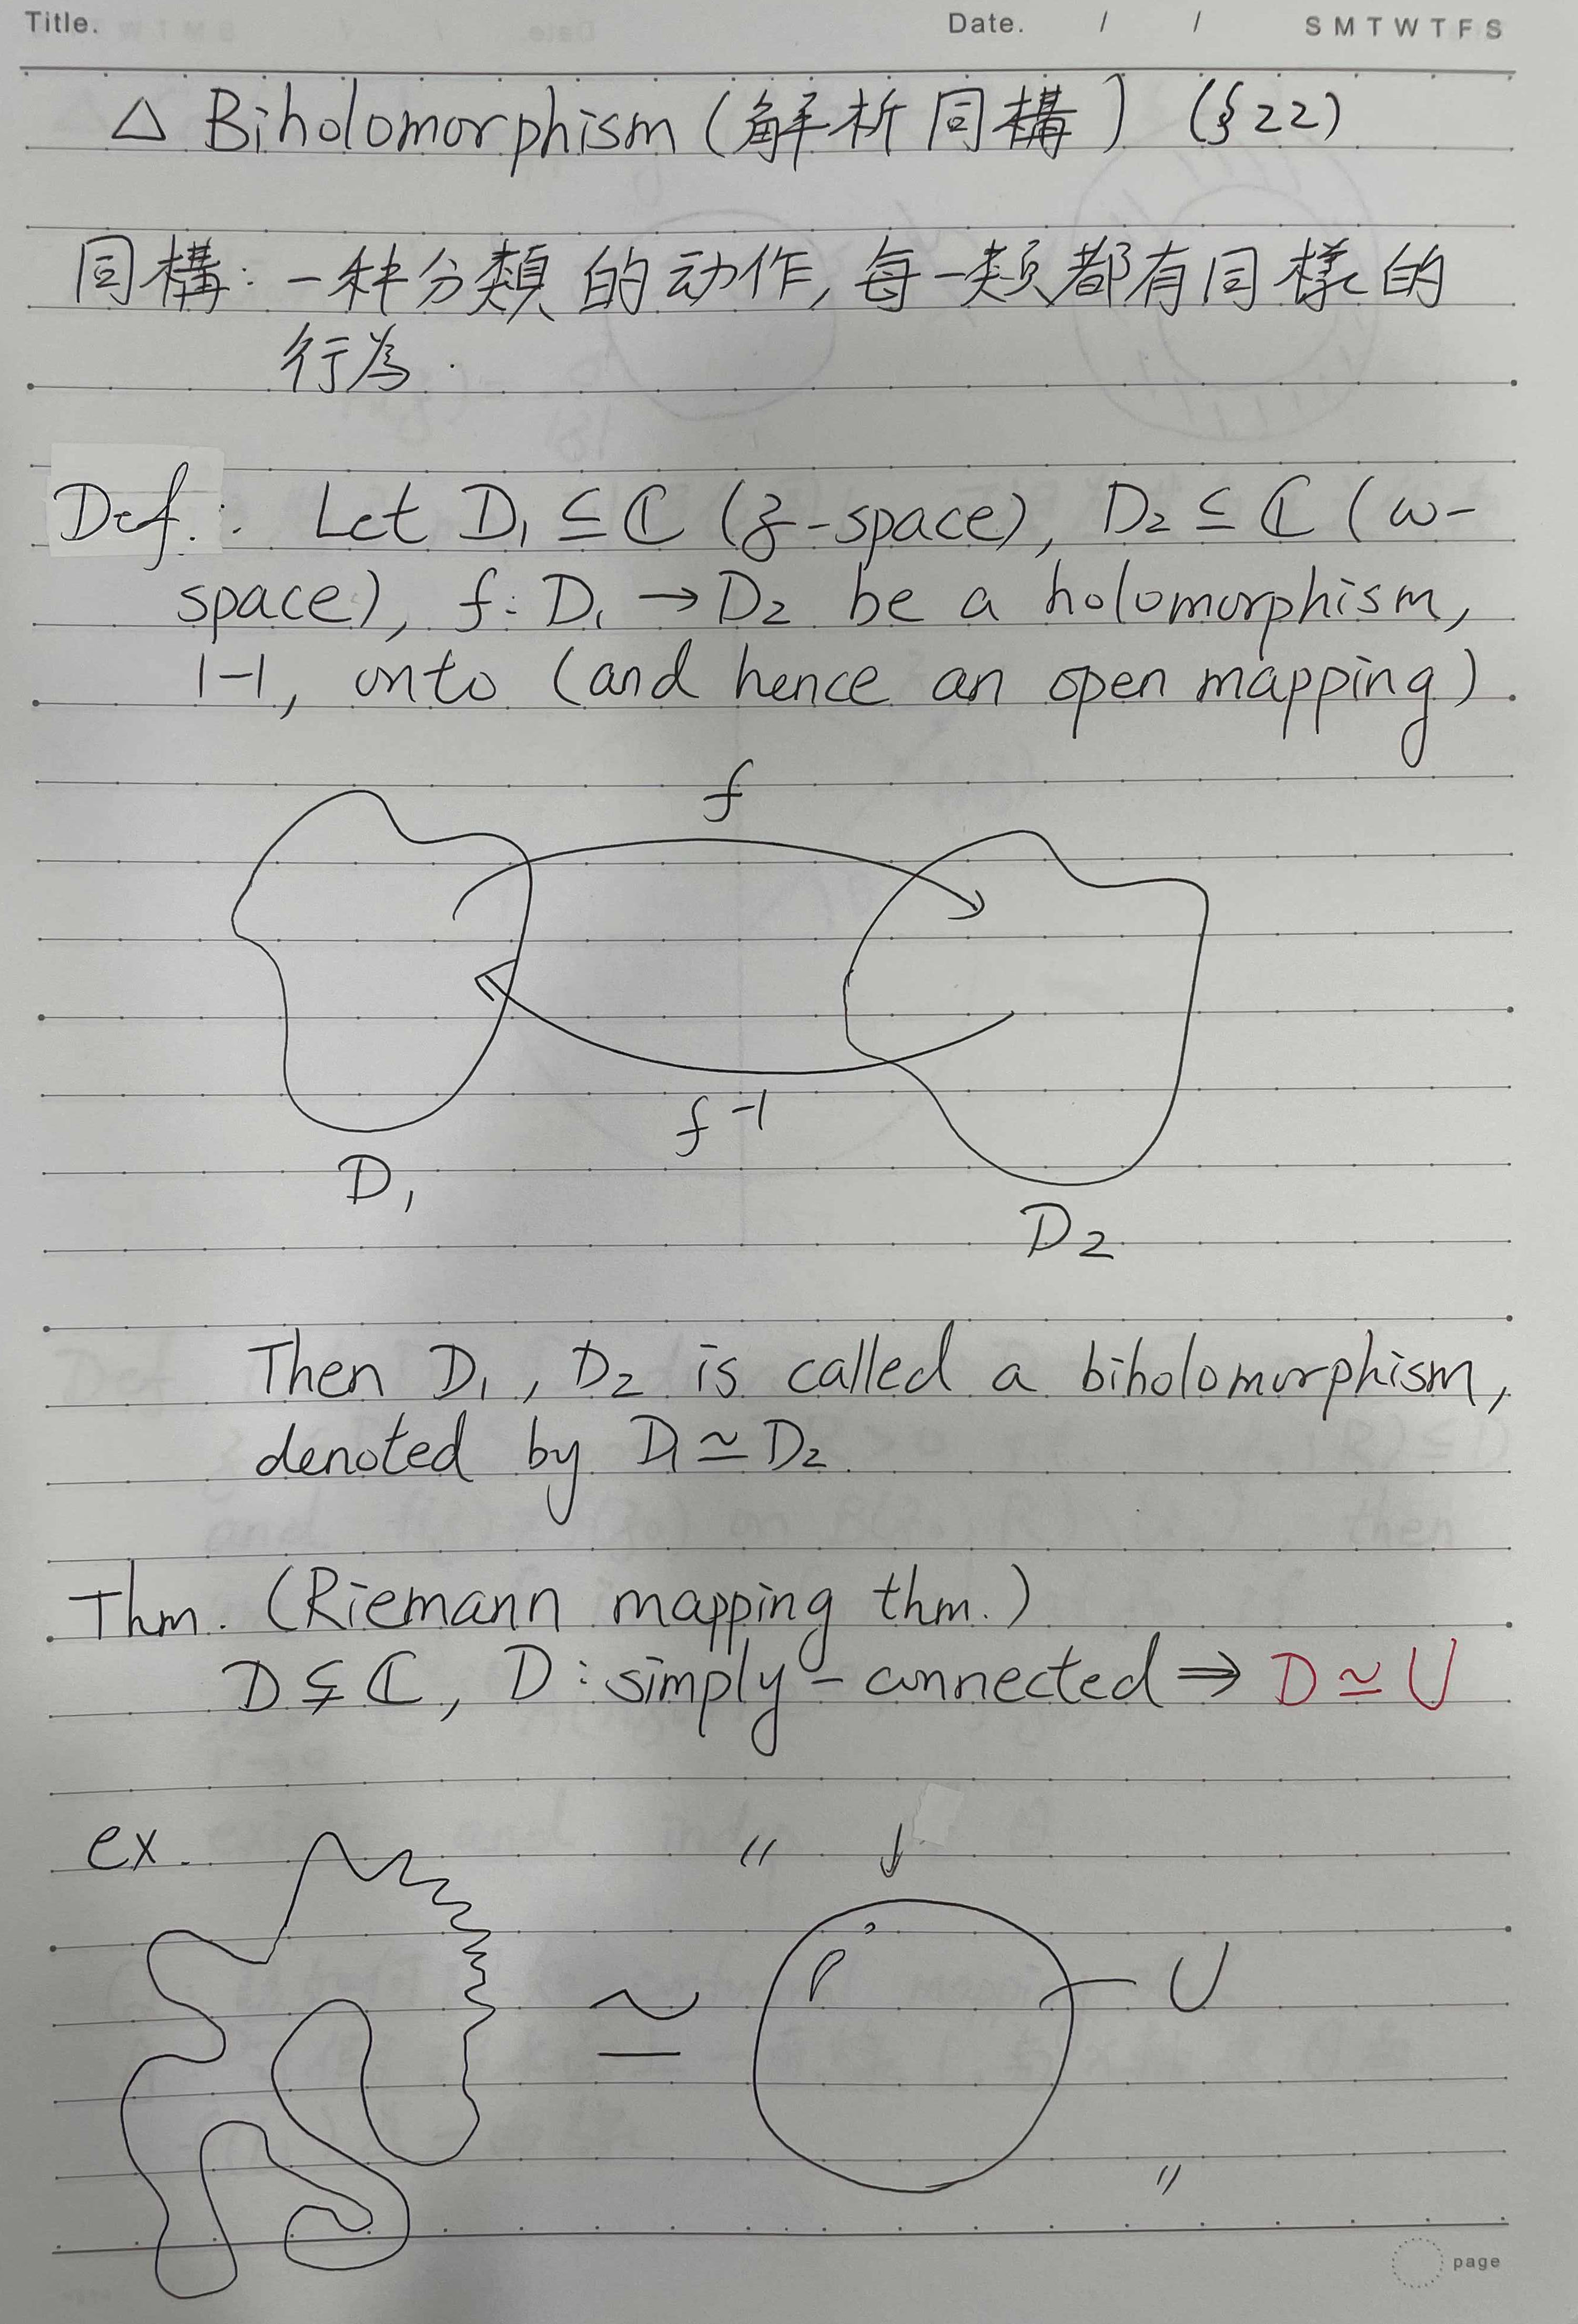 Title. Date. / / S M T W T F S
△ Biholomorphism (解析同構) (§22)
同構: 一种分類的动作, 每一類都有同樣的
行為.
Def.: Let D₁ ⊆ ℂ (z-space), D₂ ⊆ ℂ (ω-
space), f: D₁ → D₂ be a holomorphism,
1-1, onto (and hence an open mapping).
f
f⁻¹
D₁
D₂
Then D₁, D₂ is called a biholomorphism,
denoted by D₁ ≃ D₂.
Thm. (Riemann mapping thm.)
D ⊊ ℂ, D: simply-connected ⇒ D ≃ U
ex. " ↓
≃ U
"
page